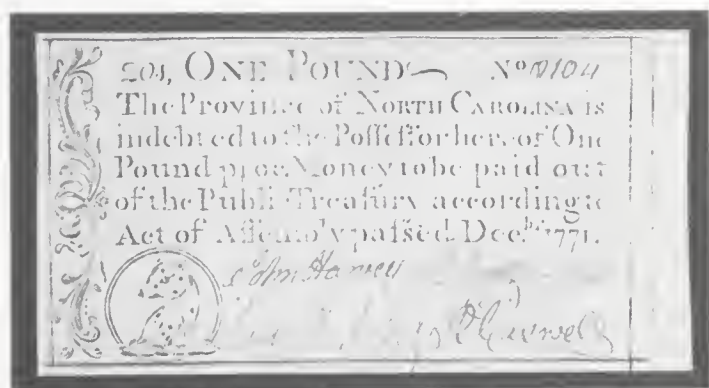 20s, ONE POUND No 0104
The Province of NORTH CAROLINA is
indebted to the Poſſeſſor hereof One
Pound proc. Money to be paid out
of the Publi Treaſury according to
Act of Aſſembly paſsed Dec.br 1771.
John Harvey